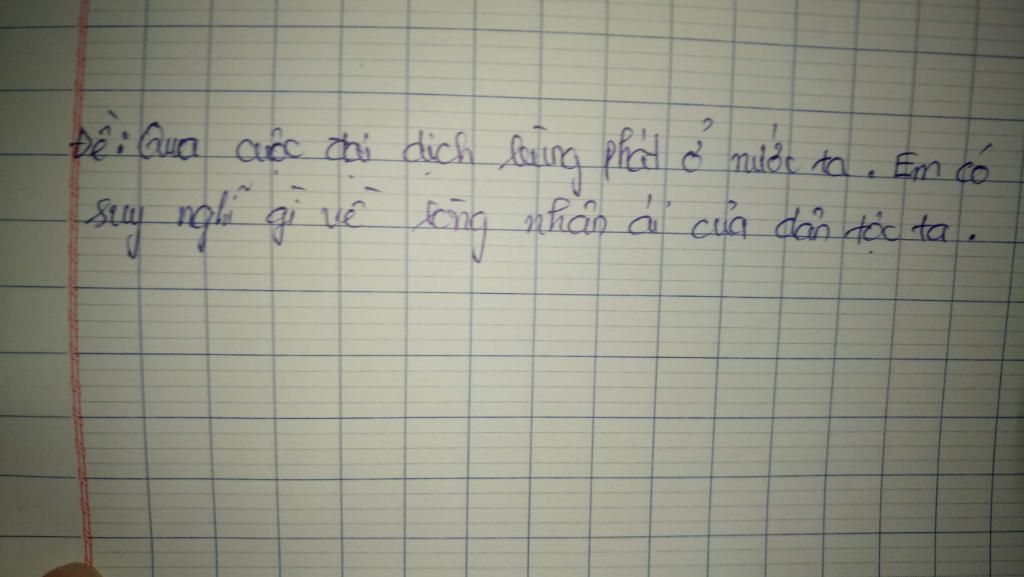 Đề: Qua cuộc đại dịch bùng phát ở nước ta. Em có
suy nghĩ gì về lòng nhân ái của dân tộc ta.